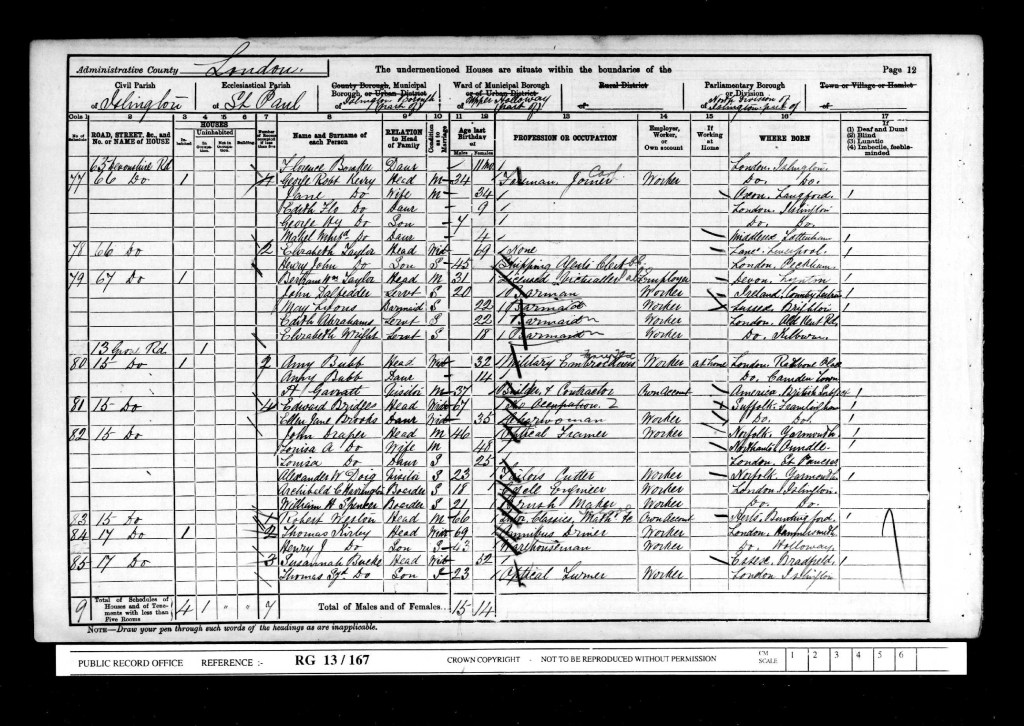 Administrative County London. The undermentioned Houses are situate within the boundaries of the Page 12
Civil Parish Ecclesiastical Parish County Borough, Municipal Borough, or Urban District Ward of Municipal Borough or of Urban District Rural District Parliamentary Borough or Division Town or Village or Hamlet
of Islington of St Paul of Islington Borough (part of) of Upper Holloway (part of) of of North Division of Islington part of of
Cols 1 2 3 4 5 6 7 8 9 10 11 12 13 14 15 16 17
ROAD, STREET, &c., and No. or NAME of HOUSE HOUSES Inhabited Uninhabited In Occupation Not in Occupation Building Name and Surname of each Person RELATION to Head of Family Condition as to Marriage Age last Birthday of Males Females PROFESSION OR OCCUPATION Employer, Worker, or Own account If Working at Home WHERE BORN If (1) Deaf and Dumb (2) Blind (3) Lunatic (4) Imbecile, feeble-minded
65 Devonshire Rd Florence Daur 11 mo London Islington
77 66 Do 1 4 George Robt Head M 34 Foreman Joiner Worker Do. Do.
Jane Do Wife M 34 Oxon. Langford
Edith Flo Do Daur 9 London Islington
George Hy Do Son 7 Do. Do.
Mabel Do Daur 4 Middlesex Tottenham
78 66 Do 2 Elizabeth Taylor Head Wid 69 None Lanc. Liverpool
Henry John Do Son S 45 Shipping Agents Clerk London. Peckham
79 67 Do 1 Bertram Wm Taylor Head M 31 Licensed Victualler Employer Devon
John Servt S 20 Barman Worker Ireland
May Lyons Barmaid S 22 Barmaid Worker Sussex Brighton
Edith Abrahams Servt S 22 Barmaid Worker London Old Kent Rd
Elizabeth Wright Servt S 18 Barmaid Worker Do.
13 Grove Rd 1
80 15 Do 1 2 Amy Bubb Head Wid 32 Military Embroideress Worker at home London. Rathbone Place
Annie Bubb Daur 14 Do. Camden Town
Visitor M 37 Builder & Contractor Own Account America British Subject
81 15 Do 4 Edward Bridges Head Wid 67 No Occupation Suffolk. Framlingham
Ellen Jane Brooks Daur Wid 35 Charwoman Worker Do. Do.
82 15 Do John Draper Head M 46 Optical Framer Worker Norfolk. Yarmouth
Louisa A Do Wife M 48 Northants Oundle
Louisa Do Daur S 25 London St Pancras
Alexander W Doig Visitor S 23 Tailors Cutter Worker Norfolk. Yarmouth
Archibald C Harrington Boarder S 18 Engineer Worker London. Islington
William H Spencer Boarder S 21 Brush Maker Worker Do. Do.
83 15 Do 1 Robert Weston Head M 66 Classics, Maths &c Own Account Herts. Buntingford
84 17 Do 1 2 Thomas Head Wid 69 Omnibus Driver Worker London. Hammersmith
Henry J Do Son S 43 Warehouseman Worker Do. Holloway
85 17 Do 3 Susannah Head Wid 52 Essex. Bradfield
Thomas Do Son S 23 Optical Turner Worker London Islington
9 Total of Schedules of Houses and of Tenements with less than Five Rooms 4 1 " " 7 Total of Males and of Females... 15 14
NOTE—Draw your pen through such words of the headings as are inapplicable.
PUBLIC RECORD OFFICE REFERENCE :- RG 13 / 167 CROWN COPYRIGHT - NOT TO BE REPRODUCED WITHOUT PERMISSION CM SCALE 1 2 3 4 5 6